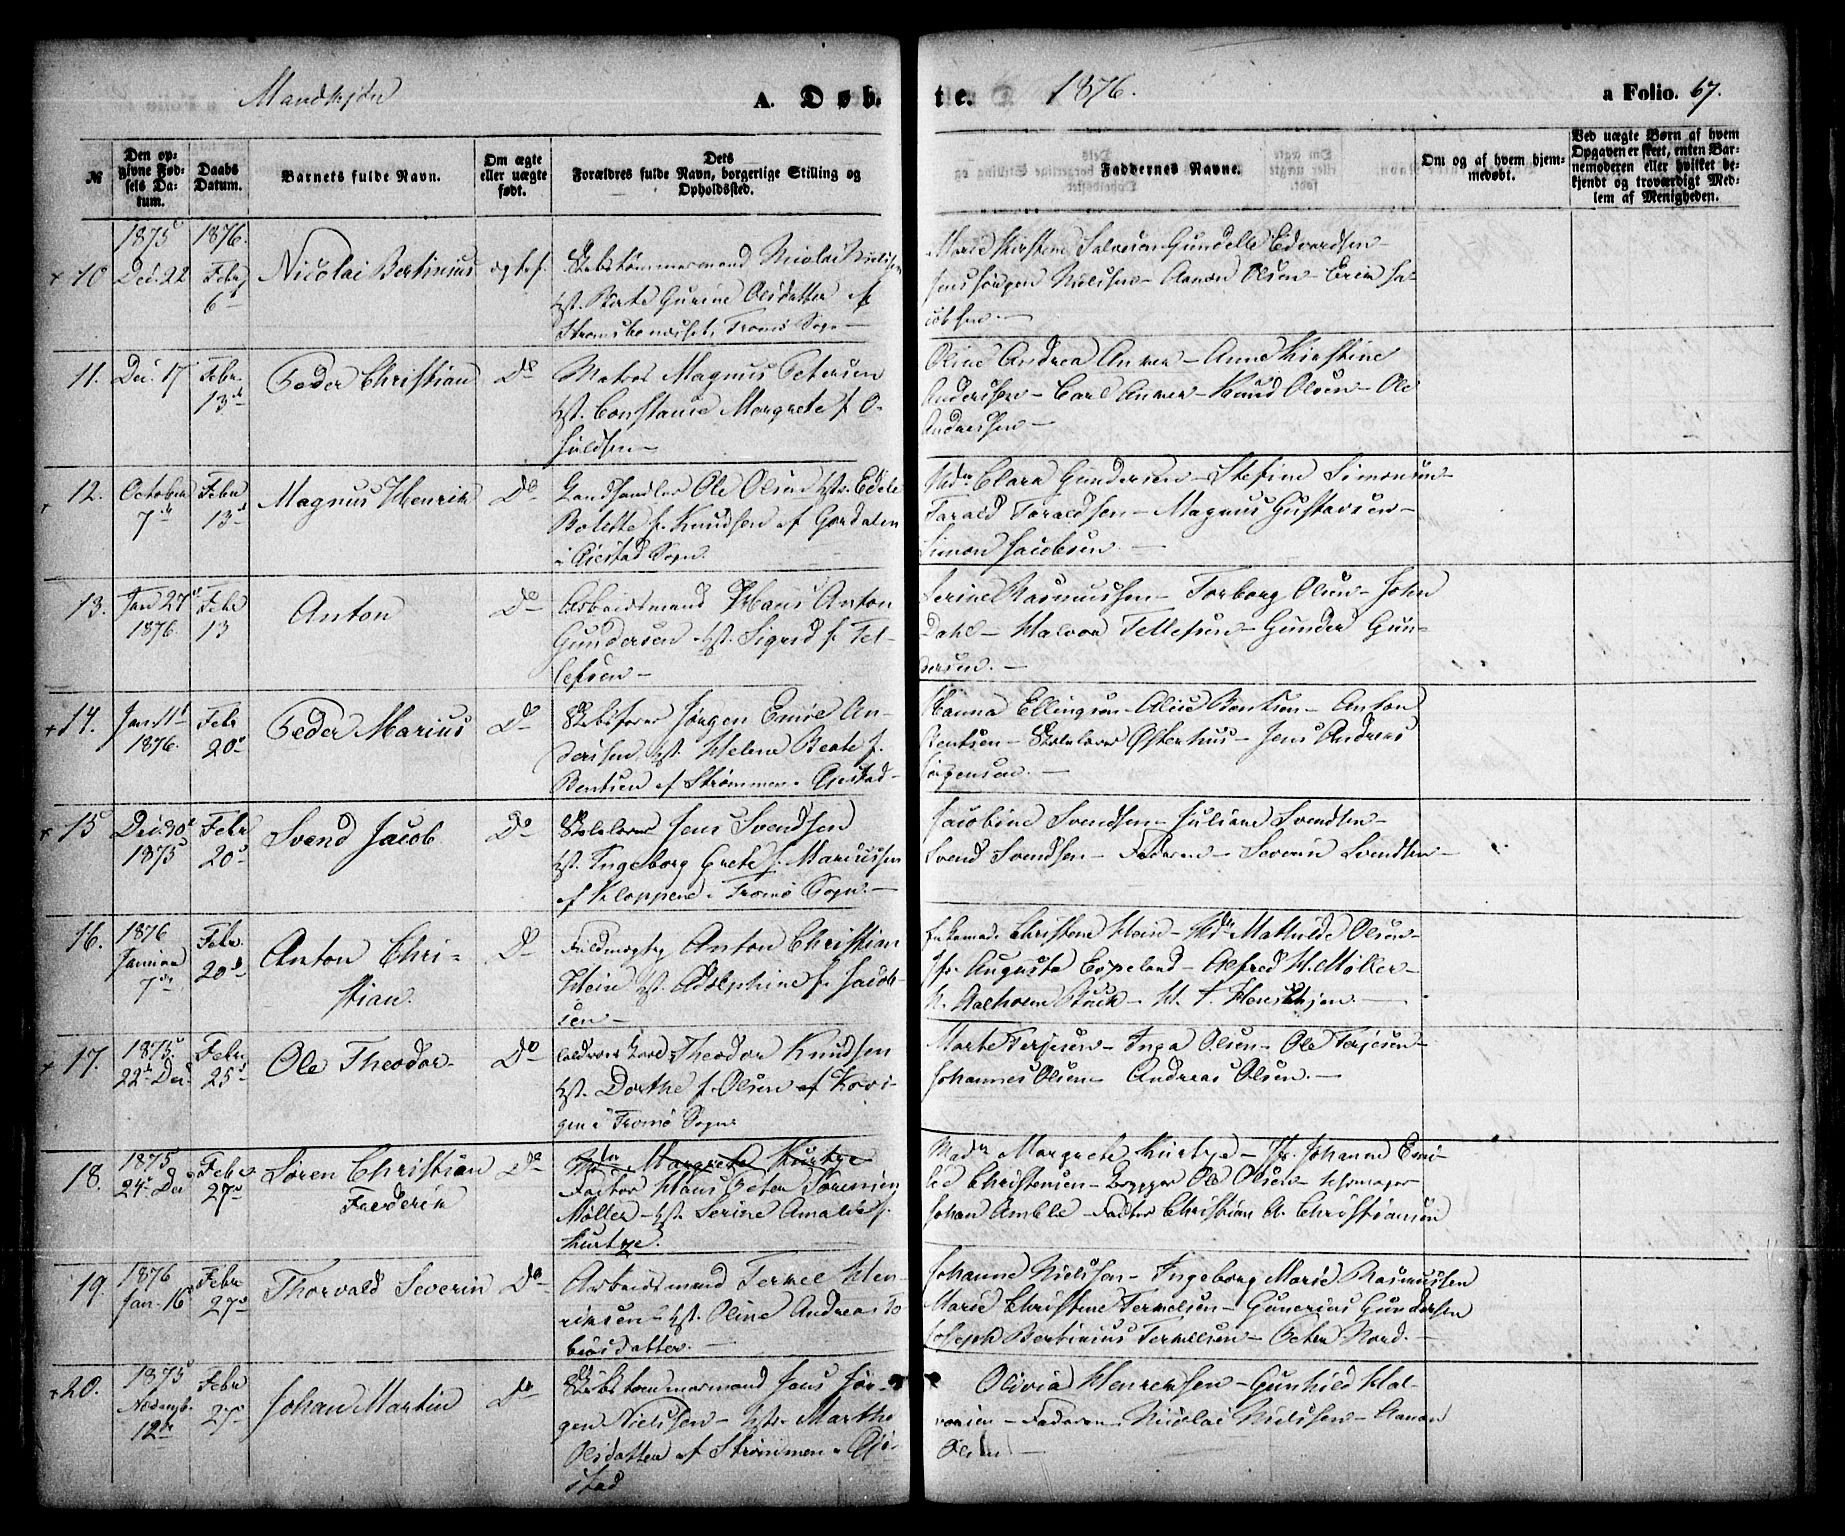 Mandkjøn
A. Døb-
te.
1876.
a Folio. 67.
№
Den op-
givne Fød-
sels Da-
tum.
Daabs
Datum.
Barnets fulde Navn.
Om ægte
eller uægte
født.
Dets
Forældres fulde Navn, borgerlige Stilling og
Opholdssted.
Faddernes Navne.
Om og af hvem hjem-
medøbt.
Ved uægte Børn af hvem
Opgaven er skeet, enten Bar-
nemoderen eller hvilket be-
kjendt og troværdigt Med-
lem af Menigheden.
10
1875
Dec. 22
1876.
Febr
6
Nicolai Bertinius
ægte f.
Skibstømmermand Nicolai Nielsen
Hst. Berte Gurine Olsdatter af
Tromø Sogn
Marie Kirstine Salvesen Gundelle Edvardsen
Jens Jørgen Nielsen - Aanon Olsen - Erik Ja-
cobsen.
11.
Dec. 17
Febr.
13de
Peder Christian
Do
Matros Magnus Petersen
Hst. Constance Margrete f. O-
Oline Andrea Anker - Anne Kirstine
Andersen - Carl Anker - Knud Olsen - Ole
Andressen -
12.
October
7de
Febr
13d
Magnus Henrik
Do
Landhandler Ole Olsen Hst. Edele
Bolette f. Knudsen af
i Øiestad Sogn.
Md. Clara Gundersen - Stefine Simonsen
Tarald Taraldsen - Magnus Gustavsen -
Simon Jacobsen. -
13.
Jan 27
1876
Febr
13
Anton
Do
Arbeidsmand Hans Anton
Gundersen Hst. Sigrid f. Tel-
lefsen -
Serine Rasmussen - Torborg Olsen - John
Dahl - Halvor Tellefsen - Gunder Gun-
dersen. -
14.
Jan 11
1876.
Febr
20d
Peder Marius
Do
Skibsfører Jørgen Emil An-
dersen Hst. Helene Beate f.
Bentsen af Strømmen i Øiestad
Hanna Ellingsen - Alice Bentsen - Anton
Bentsen - Skolelærer Østerhus - Jens Andreas
Jørgensen. -
15
Dec. 30
1875
Febr
20d
Svend Jacob
Do
Skolelærer Jens Svendsen
Hst. Ingeborg Grete f. Marcussen
af Kloppene i Tromø Sogn. -
Jacobine Svendsen - Juliane Svendsen -
Svend Svendsen - Faderen - Severin Svendsen -
16.
1876
Januar
7de
Febr.
20d
Anton Chri-
stian.
Do
Fuldmægtig Anton Christian
Hein Hst. Adolphine f. Jacob-
sen -
Christine Hein - Md. Mathilde Olsen -
Jfr. Augusta Copeland - Alfred H. Møller -
17.
1875.
22d Dec.
Febr
25d
Ole Theodor.
Do
Theodor Knudsen
Hst. Dorthe f. Olsen af Kovi-
gen i Tromø Sogn.
Marte Terjesen - Inga Olsen - Ole Terjesen -
Johannes Olsen - Andreas Olsen. -
18.
1875.
24d Dec
Febr
27d
Søren Christian
Frederik
Do
Mdm Margrete Kurtze
Factor Hans Peter Sørensen
Møller - Hst. Serine Amalie f.
Kurtze.
Mad. Margrete Kurtze - Jfr. Johanne Emi-
lie Christensen - Brygger Ole Olsen -
Johan Amble - Factor Christian A. Christiansen
19.
1876
Jan. 16
Febr
27d
Thorvald Severin
Do
Arbeidsmand Terkel Hen-
riksen - Hst. Oline Andrea To-
biasdatter. -
Johanne Nielsen - Ingeborg Marie Rasmussen
Marie Christine Terkelsen - Gunerius Gundersen
Joseph Bertinius Terkelsen - Peter Nord. -
20.
1875
Novemb.
12te
Febr
27
Johan Martin
Do
Skibstømmermand Jens Jør-
gen Nielsen - Hst. Marthe
Olsdatter af Strømmen i Øie-
stad
Olivia Henriksen - Gunhild Hal-
vorsen - Faderen - Nicolai Nielsen - Aanon
Olsen -